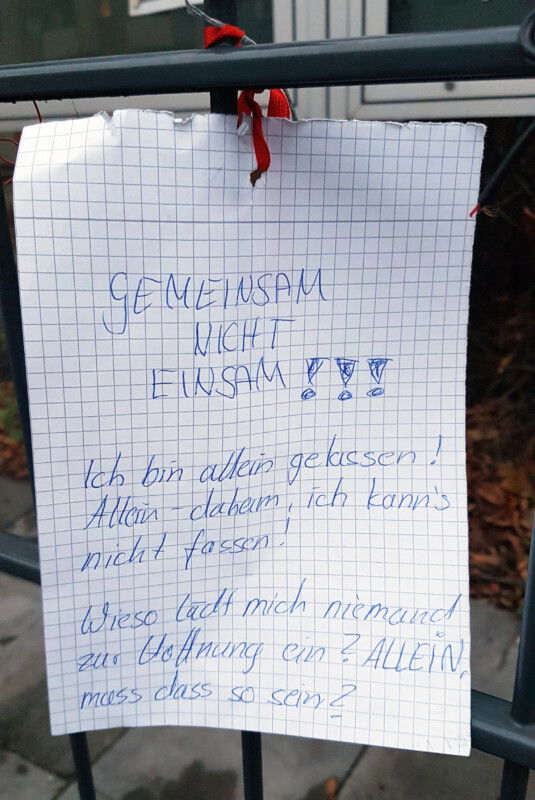 GEMEINSAM
NICHT
EINSAM!!!
Ich bin allein gelassen!
Allein - daheim, ich kann's
nicht fassen!
Wieso lädt mich niemand
zur Hoffnung ein? ALLEIN,
muss dass so sein?